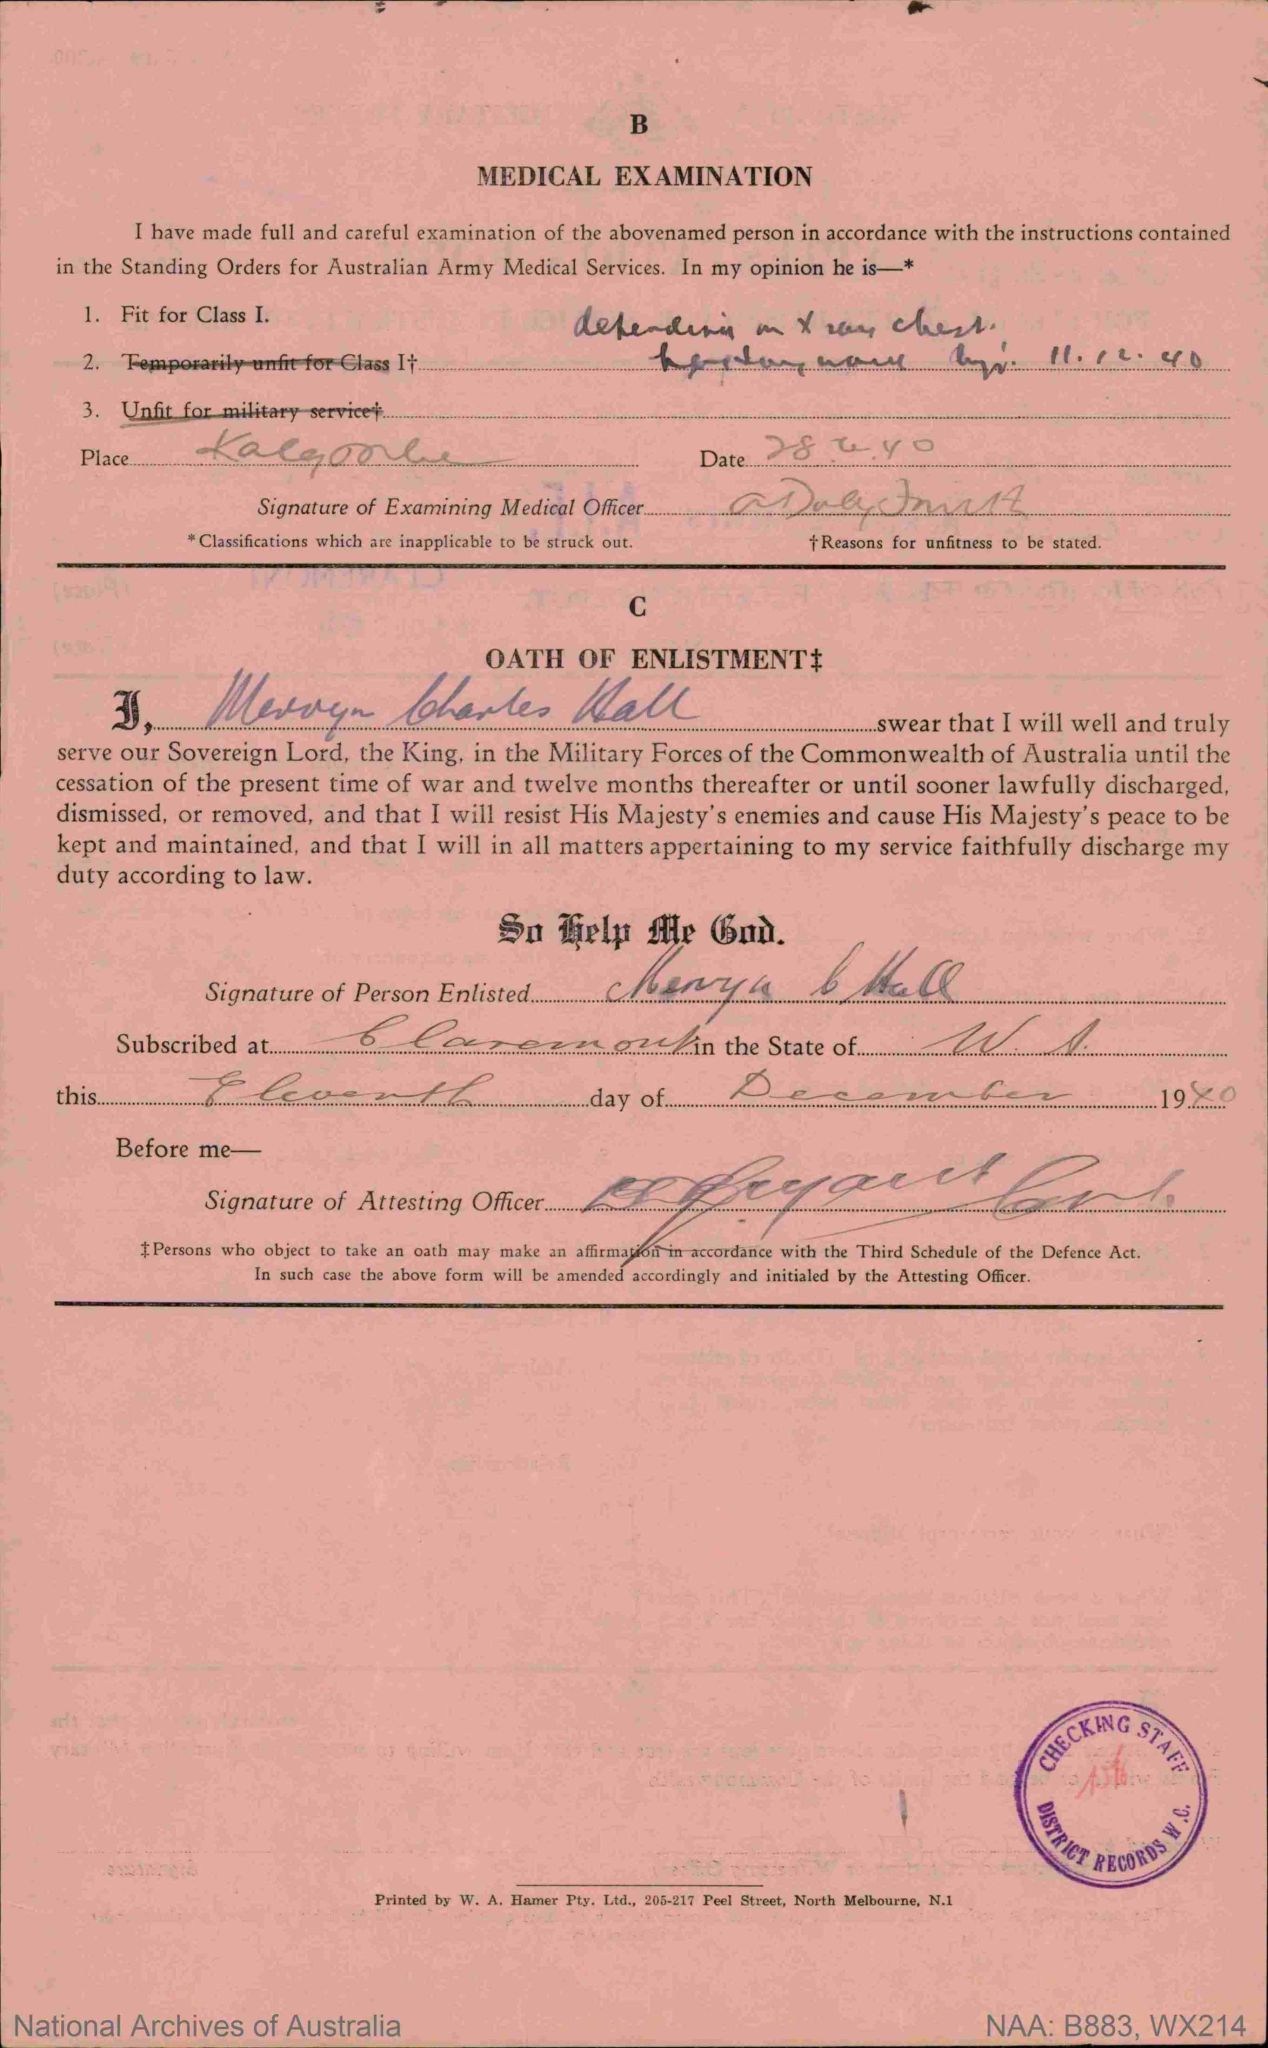 B
MEDICAL EXAMINATION
I have made full and careful examination of the abovenamed person in accordance with the instructions contained
in the Standing Orders for Australian Army Medical Services. In my opinion he is—*
1. Fit for Class I. depending on X ray chest.
2. Temporarily unfit for Class I† 11.12.40
3. Unfit for military service†
Place Kalgoorlie Date 28.6.40
Signature of Examining Medical Officer
*Classifications which are inapplicable to be struck out. †Reasons for unfitness to be stated.
C
OATH OF ENLISTMENT‡
I, Mervyn Charles Hall swear that I will well and truly
serve our Sovereign Lord, the King, in the Military Forces of the Commonwealth of Australia until the
cessation of the present time of war and twelve months thereafter or until sooner lawfully discharged,
dismissed, or removed, and that I will resist His Majesty's enemies and cause His Majesty's peace to be
kept and maintained, and that I will in all matters appertaining to my service faithfully discharge my
duty according to law.
So Help Me God.
Signature of Person Enlisted Mervyn C Hall
Subscribed at Claremont in the State of W. A.
this Eleventh day of December 1940
Before me—
Signature of Attesting Officer
‡Persons who object to take an oath may make an affirmation in accordance with the Third Schedule of the Defence Act.
In such case the above form will be amended accordingly and initialed by the Attesting Officer.
CHECKING STAFF
DISTRICT RECORDS W.C.
Printed by W. A. Hamer Pty. Ltd., 205-217 Peel Street, North Melbourne, N.1
National Archives of Australia NAA: B883, WX214